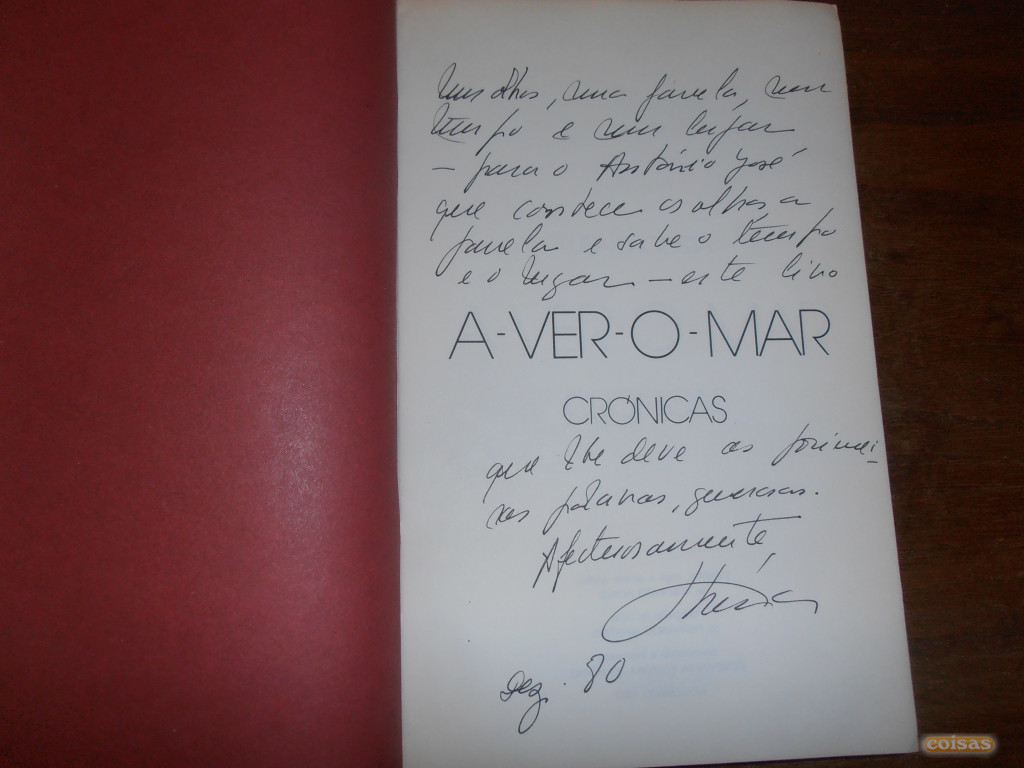 Uns olhos, uma janela, num
tempo e num lugar
– para o António José
que conhece os olhos a
janela e sabe o tempo
e o lugar – este livro
A-VER-O-MAR
CRÓNICAS
que lhe deve as primei-
ras palavras, generosas.
Afectuosamente,
Dez. 80
coisas